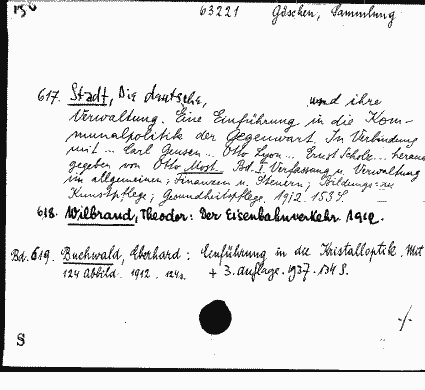 63221 Göschen, Sammlung
617. Stadt, Die deutsche, und ihre
Verwaltung. Eine Einführung in die Kom-
munalpolitik der Gegenwart. In Verbindung
mit ... Carl ... Otto Lyon ... Ernst Scholz ... heraus
gegeben von Otto Most Bd. I Verfassung u. Verwaltung
im allgemeinen; Finanzen u. Steuern; Bildungs- u.
Kunstpflege; Gesundheitspflege. 1912. 153 S.
618. Wilbrand, Theodor: Der Eisenbahnverkehr. 1912.
Bd. 619. Buchwald, Eberhard: Einführung in die Kristalloptik. Mit
124 Abbild. 1912. 124 S. + 3. Auflage. 1937. 134 S.
-/-
S